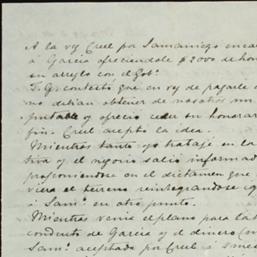 A la vez Creel por Samaniego encar
a Garcia ofreciendole $2000 de hon
su arreglo con el Gobº
T. G. contestó que en vez de pagarle
no debian obtener de nosotros un
y ofreció ceder su honorar
fin. Creel aceptó la idea.
Mientras tanto yo trabajé en la
tiva y el negocio salió informad
proponiendose en el dictamen que
viera el terreno reintegrandose
á Samº en otro punto.
Mientras venia el plano para la
conducto de Garcia y el dinero
Samº aceptada por Creel